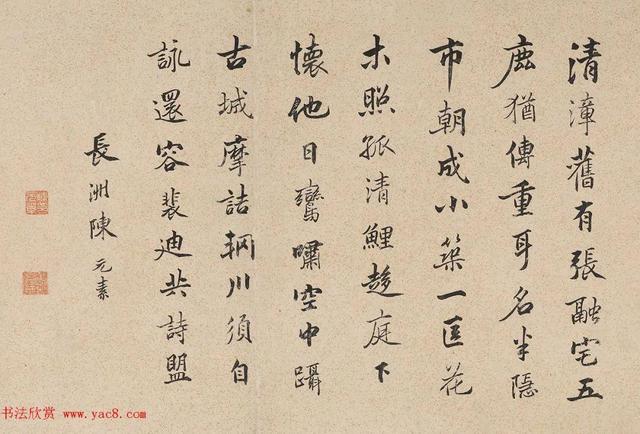 清漳舊有張融宅五
鹿猶傳重耳名半隱
市朝成小築一匡花
木照孤清鯉趍庭下
懷他日鸞嘯空中躡
古城摩詰輞川須自
詠還容裴迪共詩盟
長洲陳元素
书法欣赏 www.yac8.com